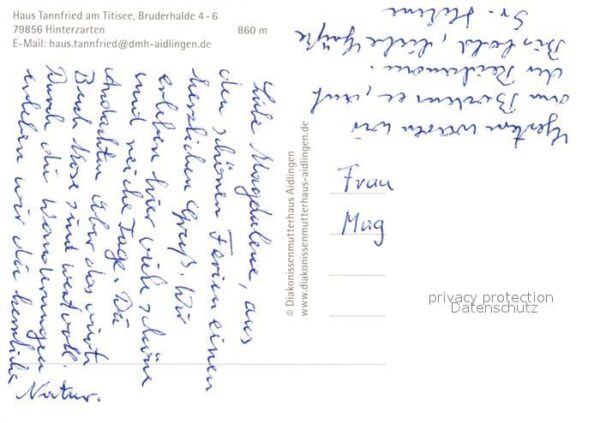 Haus Tannfried am Titisee, Bruderhalde 4-6
79856 Hinterzarten
E-Mail: haus.tannfried@dmh-aidlingen.de
860 m
Liebe Magdalene, aus
den schönen Ferien einen
herzlichen Gruß. Wir
erleben hier viele schöne
und reiche Tage. Die
Andachten über das vierte
Buch Mose sind wertvoll.
Durch die Wanderungen
erleben wir die herrliche
Natur.
Gestern waren wir
am, auf
der
Bis bald, liebe Grüße
Sr. Helene
© Diakonissenmutterhaus Aidlingen
www.diakonissenmutterhaus-aidlingen.de
Frau
Mag
privacy protection
Datenschutz